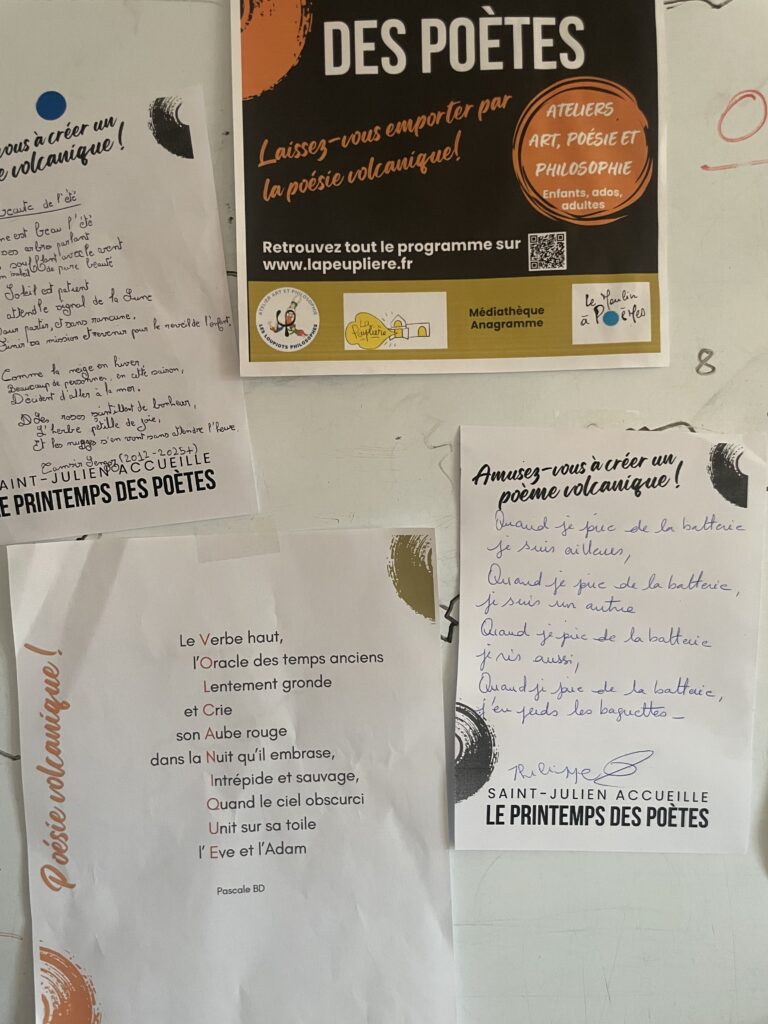 DES POÈTES
Laissez-vous emporter par
la poésie volcanique!
ATELIERS
ART, POÉSIE ET
PHILOSOPHIE
Enfants, ados,
adultes
Retrouvez tout le programme sur
www.lapeupliere.fr
ATELIER ART ET PHILOSOPHIE
LES LOUPIOTS PHILOSOPHES
La Peupliere
Médiathèque
Anagramme
Le Moulin
à Poèmes
8
vous à créer un
volcanique !
de l'été
est beau l'été
arbre parlant
avec le vent
de pure beauté
Soleil est patient
attend le signal de la Lune
partir, et sans rancune,
sa mission et revenir pour le réveil de l'enfant.
Comme la neige en hiver,
Beaucoup de personnes, en cette saison,
Décident d'aller à la mer.
Les roses scintillent de bonheur,
L'herbe pétille de joie,
Et les nuages s'en vont sans attendre l'heure.
(2012-2025+)
SAINT-JULIEN ACCUEILLE
LE PRINTEMPS DES POÈTES
Poésie volcanique !
Le Verbe haut,
l'Oracle des temps anciens
Lentement gronde
et Crie
son Aube rouge
dans la Nuit qu'il embrase,
Intrépide et sauvage,
Quand le ciel obscurci
Unit sur sa toile
l' Eve et l'Adam
Pascale BD
Amusez-vous à créer un
poème volcanique !
Quand je joue de la batterie
je suis ailleurs,
Quand je joue de la batterie,
je suis un autre
Quand je joue de la batterie
je ris aussi,
Quand je joue de la batterie,
j'en perds les baguettes_
Philippe
SAINT-JULIEN ACCUEILLE
LE PRINTEMPS DES POÈTES